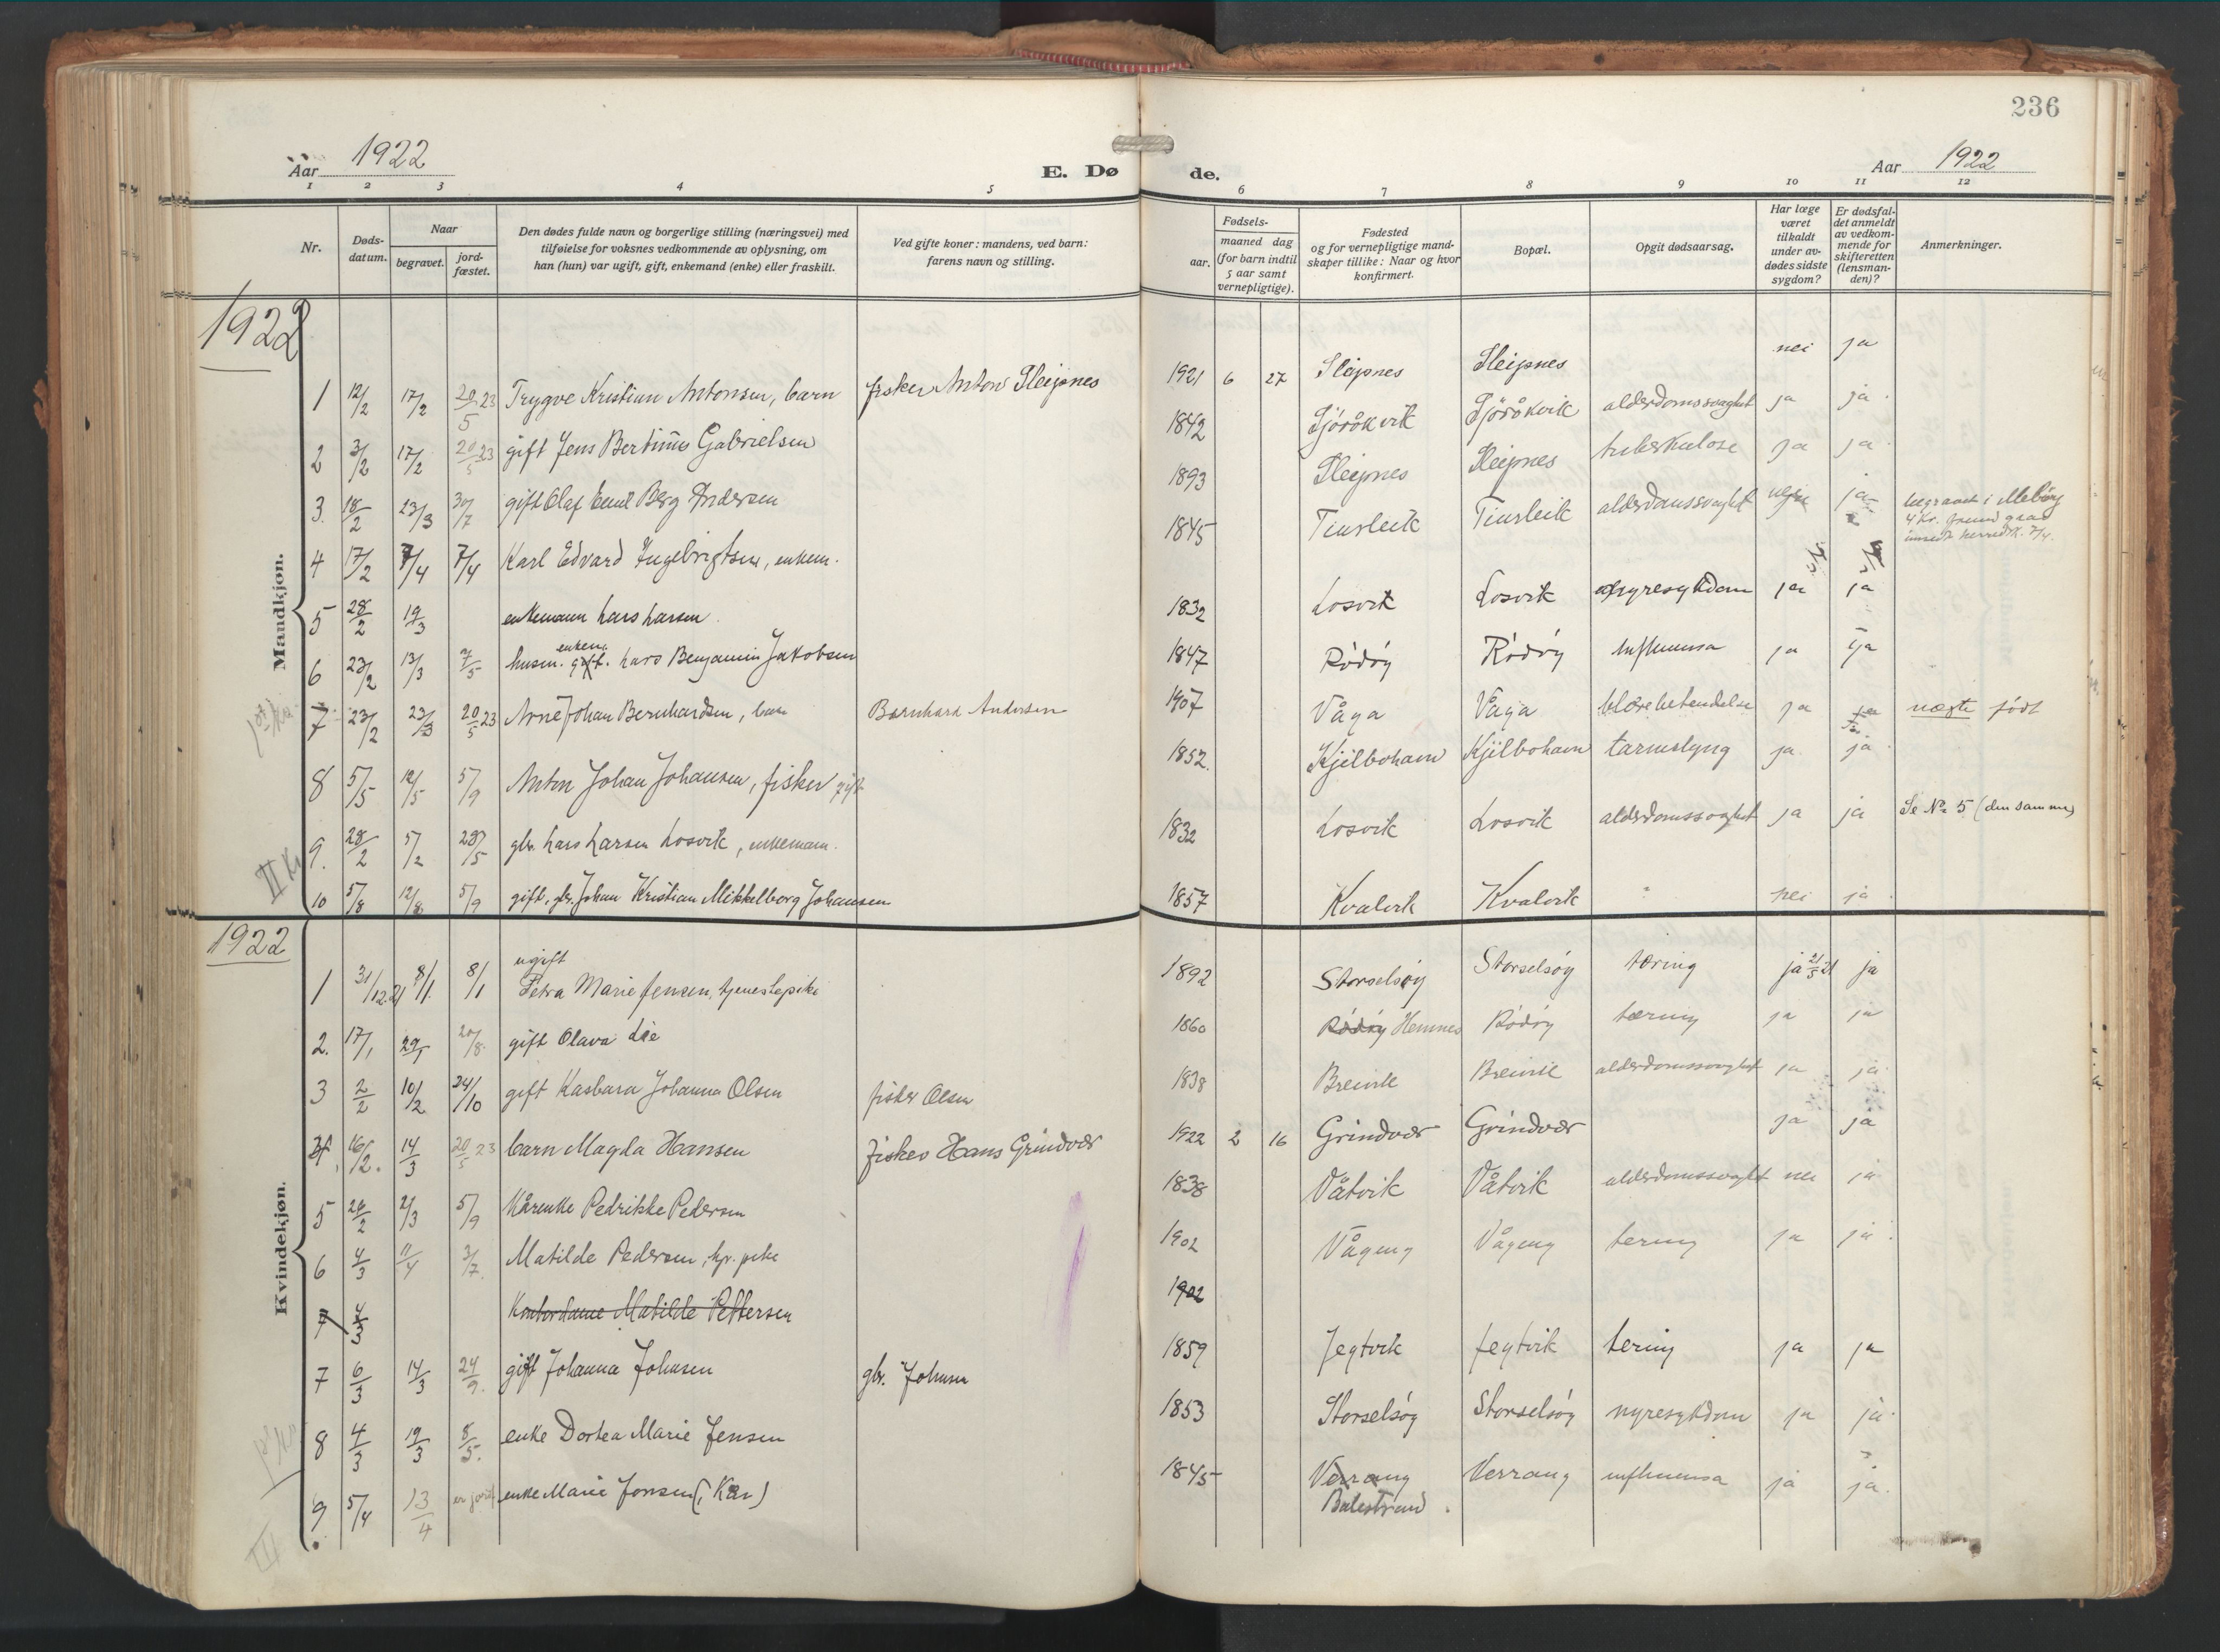 236
Aar 1922
E. Døde.
Aar 1922
1 2 3 4 5 6 7 8 9 10 11 12
Nr.
Døds-
datum.
Naar
begravet.
jord-
fæstet.
Den dødes fulde navn og borgerlige stilling (næringsvei) med
tilføielse for voksnes vedkommende av oplysning, om
han (hun) var ugift, gift, enkemand (enke) eller fraskilt.
Ved gifte koner: mandens, ved barn:
farens navn og stilling.
Fødsels-
aar.
maaned dag
(for barn indtil
5 aar samt
vernepligtige).
Fødested
og for vernepligtige mand-
skaper tillike: Naar og hvor
konfirmert.
Bopæl.
Opgit dødsaarsag.
Har læge
været
tilkaldt
under av-
dødes sidste
sygdom?
Er dødsfal-
det anmeldt
av vedkom-
mende for
skifteretten
(lensman-
den)?
Anmerkninger.
1922
Mandkjøn.
1 12/2 17/2 20/5 23 Trygve Kristian Antonsen, barn fisker Anton Sleipnes 1921 6 27 Sleipnes Sleipnes nei ja
2 3/2 17/2 20/5 23 gift Jens Bertinus Gabrielsen 1842 alderdomssvaghet ja ja
3. 18/2 23/3 30/7 gift Olaf Berg Andersen 1893 Sleipnes Sleipnes tuberkulose ja ja
4 17/2 7/4 7/4 Karl Edvard Ingebrigtsen, enkem. 1845 alderdomssvaghet ja begravet i
5 28/2 19/3 enkemann Lars Larsen 1832 Losvik Losvik nyresykdom ja ja
6 23/2 13/3 7/5 husm. enkem. gift. Lars Benjamin Jakobsen 1847 Rödöy Rödöy Influensa ja ja
7 23/2 23/3 20/5 23 Arne Johan Bernhardsen, barn Bernhard Andersen 1907 Våga Våga ja ja uægte født
8 5/5 12/5 5/9 Anton Johan Johansen, fisker gift 1852. Kjilboham Kjilboham tarmslyng ja ja
9. 28/2 5/2 28/5 gbr. Lars Larsen Losvik, enkemann. 1832 Losvik Losvik alderdomssvaghet ja ja Se No 5 (den samme)
10 5/8 12/8 5/9 gift. gbr. Johan Kristian Mikkelborg Johansen 1857 Kvalvik Kvalvik " nei ja
1922
Kvindekjøn.
1 31/12 21 8/1 8/1 ugift Petra Marie Jensen, tjenestepike 1892 Storselsöy Storselsöy tæring ja ja
2. 17/1 29/1 20/8 gift Olava Lie 1860 Rödöy Hemnes Rödöy tæring ja ja
3 2/2 10/2 24/10 gift Kasbara Johanna Olsen fisker Olsen 1838 Breivik Breivik alderdomssvaghet ja ja
4. 16/2. 14/3 20/5 23 barn Magda Hansen fisker Hans Grindvær 1922 2 16 Grindvær Grindvær ja ja
5 26/2 2/3 5/9 Kårenke Pedrikke Pedersen 1838 Våtvik Våtvik alderdomssvaghet nei ja
6 4/3 11/4 3/7 Matilde Pedersen, pike 1902 Vågeng Vågeng tering ja ja
7 4/3 Kontordame Matilde Pettersen 1902
7 6/3 14/3 24/9. gift Johanna Johnsen gbr. Johnsen 1859 Jegtvik Jegtvik tering ja ja
8 4/3 19/3 8/5. enke Dortea Marie Jensen 1853 Storselsöy Storselsöy nyresykdom ja ja
9 5/4 13/4 enke Marie Jonsen 1845 Verrang Verrang influensa ja ja
Balestrand.